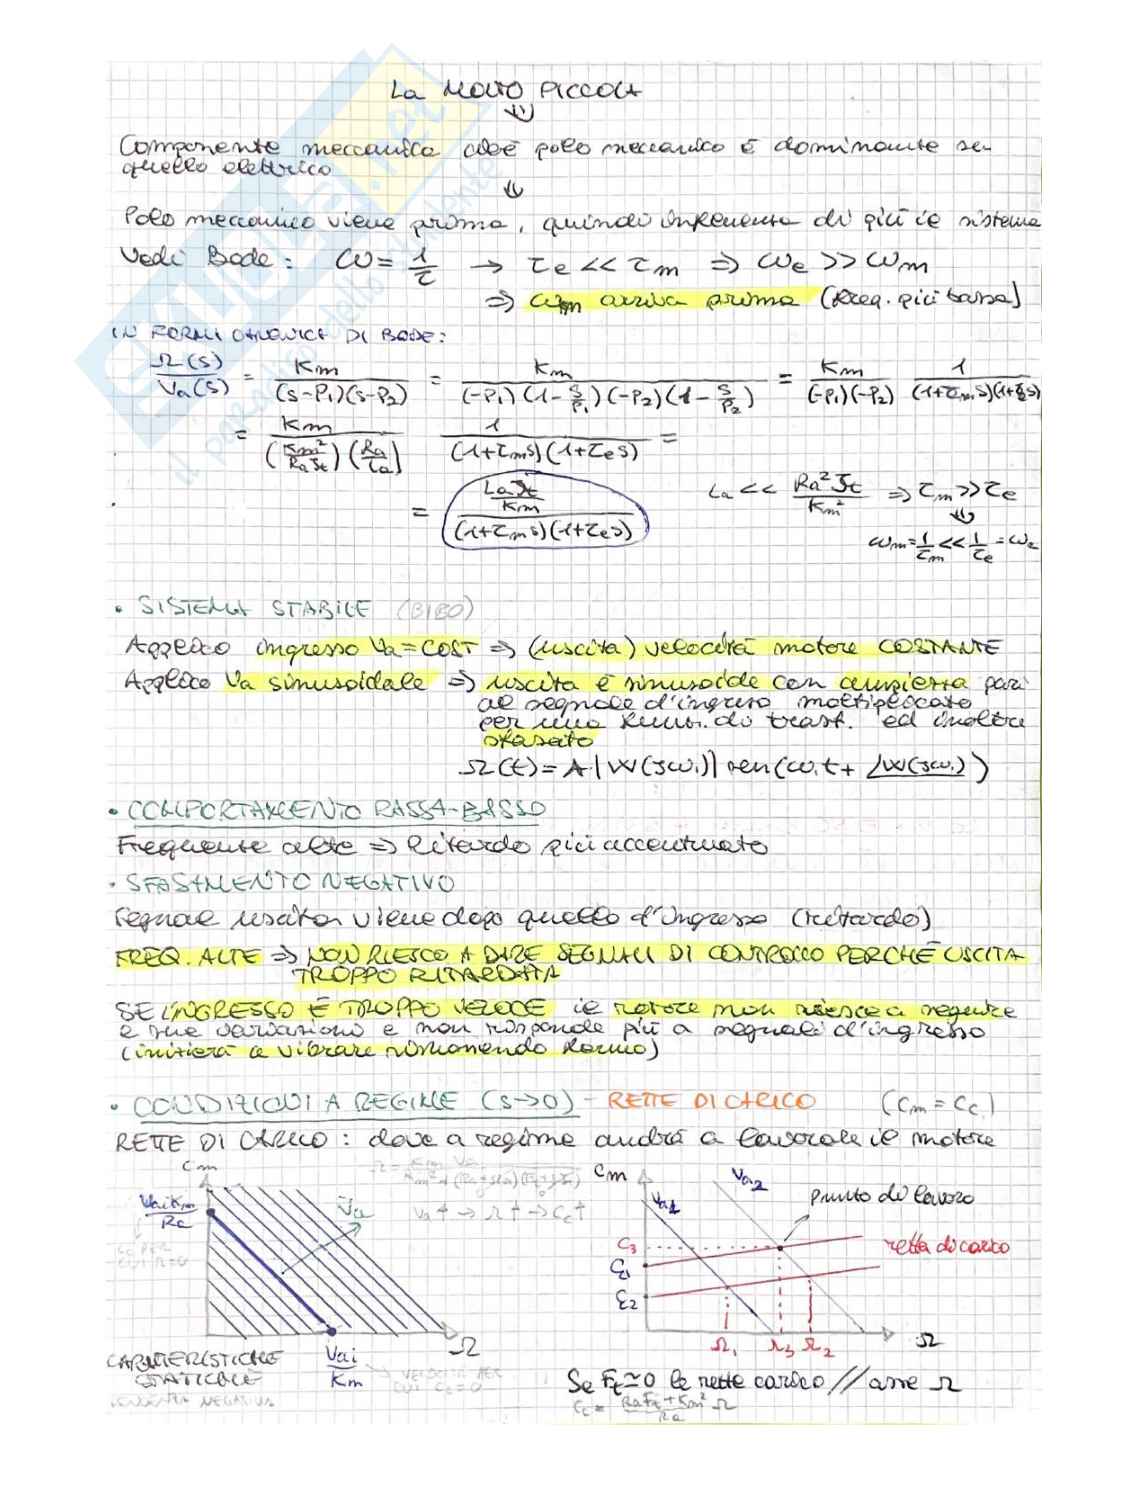 La MOLTO PICCOLA
⇓
Componente meccanica cioè polo meccanico è dominante su
quello elettrico
⇓
Polo meccanico viene prima, quindi influenza di più il sistema
Vedi Bode: ω = 1/τ → τe << τm ⇒ ωe >> ωm
⇒ ωm arriva prima (freq. più bassa)
IN FORMA CANONICA DI BODE:
Ω(s)/Va(s) = Km/((s-P1)(s-P2)) = Km/((-P1)(1-s/P1)(-P2)(1-s/P2)) = Km/((-P1)(-P2)) 1/((1+τms)(1+τes))
= Km/((Km²/RaJt)(Ra/La)) 1/((1+τms)(1+τes)) =
= (LaJt/Km)/((1+τms)(1+τes))
La << Ra²Jt/Km² ⇒ τm >> τe
⇓
ωm = 1/τm << 1/τe = ωe
• SISTEMA STABILE (BIBO)
Applico ingresso Va = COST ⇒ (uscita) velocità motore COSTANTE
Applico Va sinusoidale ⇒ uscita è sinusoide con ampiezza pari
al segnale d'ingresso moltiplicato
per una funz. di trasf. ed inoltre
sfasato
Ω(t) = A|W(jωi)| sen(ωit + ∠W(jωi))
• COMPORTAMENTO PASSA-BASSO
Frequenze alte ⇒ Ritardo più accentuato
• SFASAMENTO NEGATIVO
Segnale uscita viene dopo quello d'ingresso (ritardo)
FREQ. ALTE ⇒ NON RIESCO A DARE SEGNALI DI CONTROLLO PERCHÉ USCITA
TROPPO RITARDATA
SE INGRESSO È TROPPO VELOCE il rotore non riesce a seguire
le sue variazioni e non risponde più a segnali d'ingresso
(inizierà a vibrare rimanendo fermo)
• CONDIZIONI A REGIME (s→0) - RETTE DI CARICO (Cm = Cc)
RETTE DI CARICO: dove a regime andrà a lavorare il motore
Cm
VaiKm/Ra
Va
Va↑ → Ω↑ → Cc↑
Ω
Vai/Km
CARATTERISTICHE
STATICHE
PENDENZA NEGATIVA
VELOCITÀ PER
CUI Cc=0
Cm
Va1
Va2
punto di lavoro
retta di carico
C3
C1
C2
Ω1 Ω3 Ω2
Ω
Se Ft≃0 le rette carico // asse Ω
Cc = (RaFt+Km²)/Ra Ω